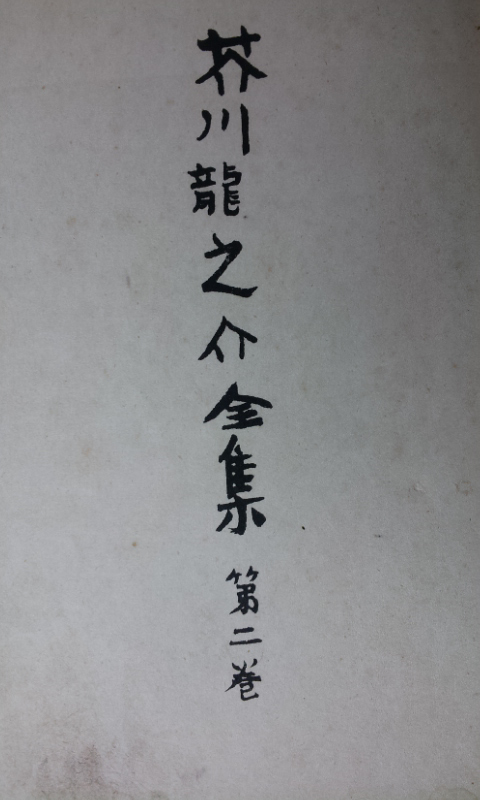 芥川龍之介全集 第二巻